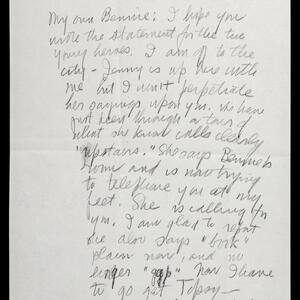 My own Bennie: I hope you
wrote the statement for the two
young heroes. I am off to the
city - Jenny is up here with
me but I won't perpetuate
her sayings upon you. She has
just been through a tour of
what she now calls clearly
"upstairs." She says Bennie's
room and is now trying
to telephone you at my
feet. She is calling for
you. I am glad to report
she also says "book"
plain now, and no
longer Now I have
to go get Topsy-